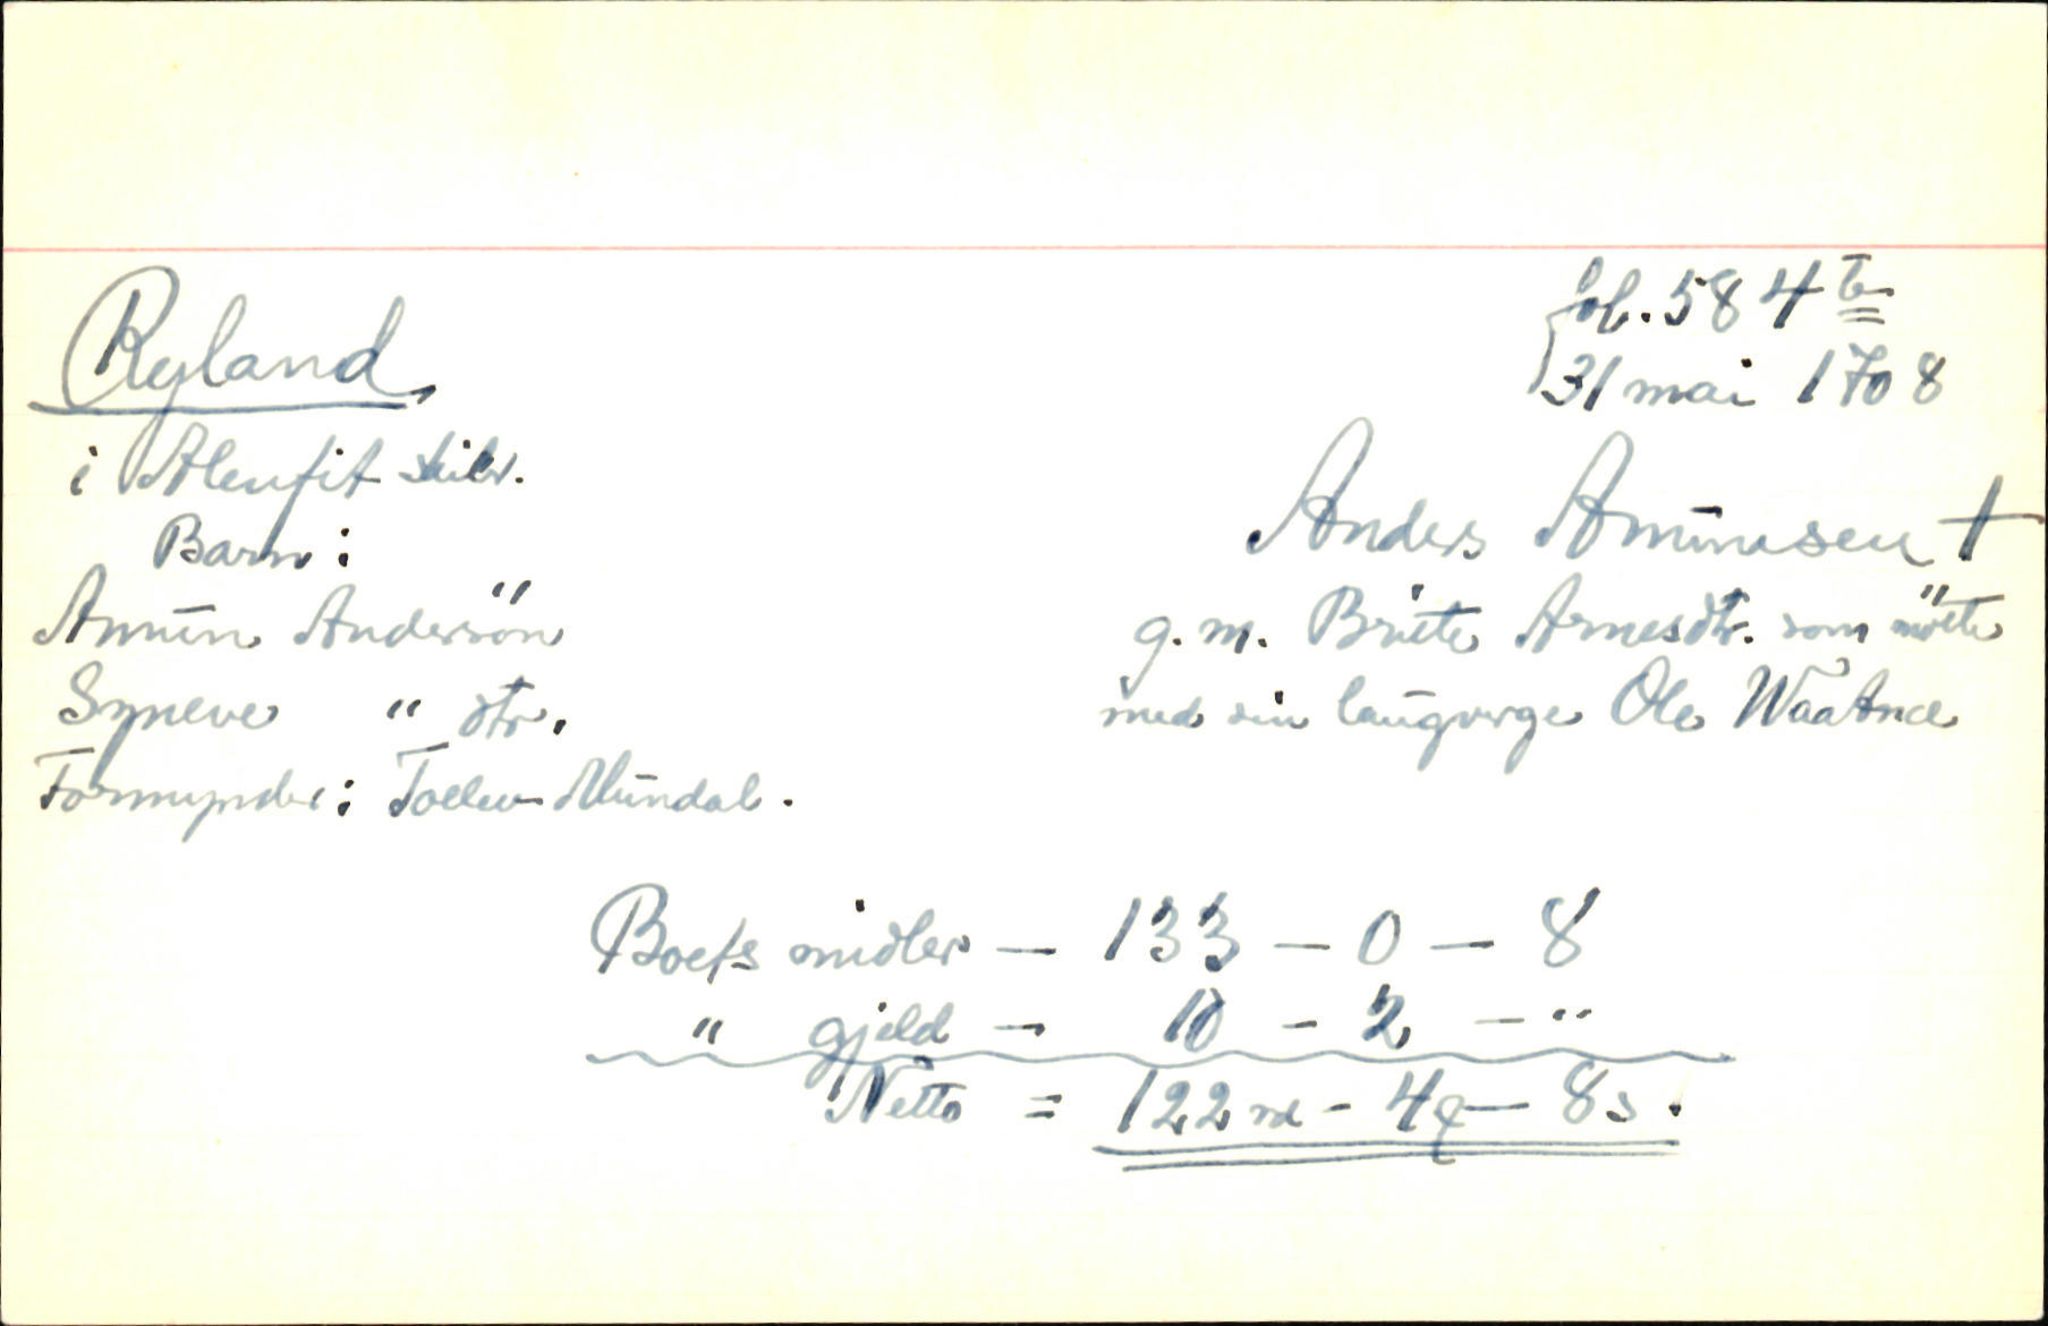 fol. 584 b
31 mai 1708
Ryland
i Menfit skibr.
Barn:
Amun Andersön
Syneve " dtr.
Formynder: Tollew Mundal.
Anders Amunsen †
g. m. Brite Arnesdtr. som mötte
med sin laugverge Ole Waatnæ
Boets midler — 133 — 0 — 8
" gjeld — 10 — 2 — "
Netto = 122 rd - 4 q — 8 s.